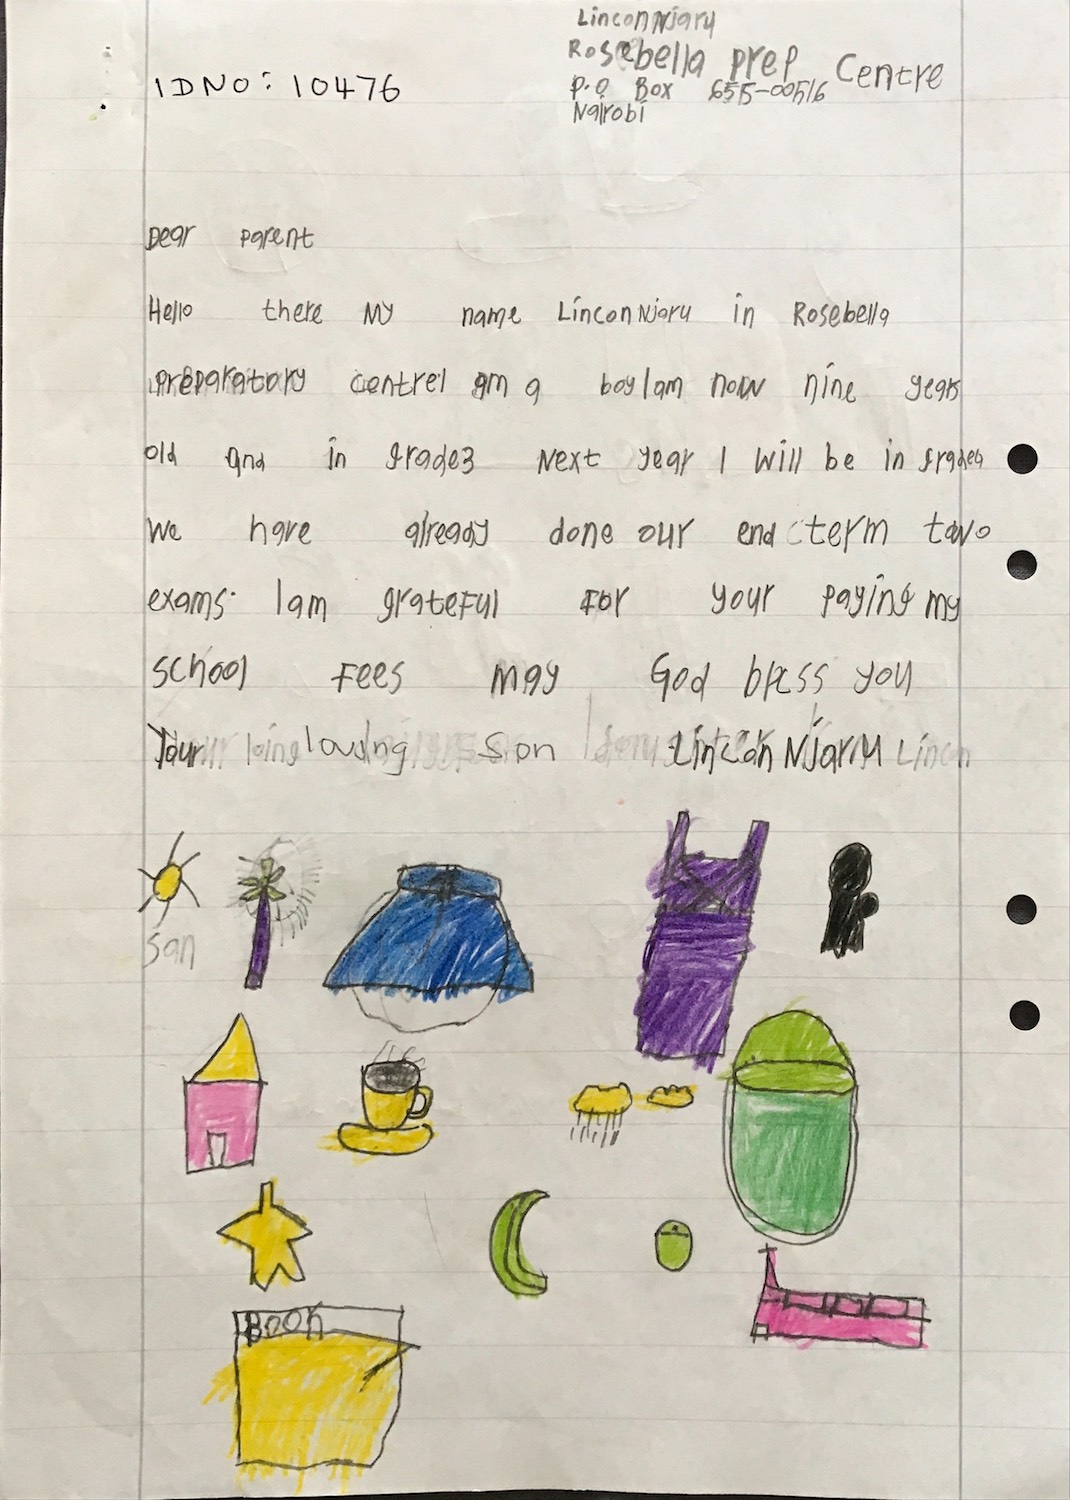 Lincon Njaru
Rosebella prep Centre
IDNO: 10476
P.O Box 655-00516
Nairobi
Dear parent
Hello there My name Lincon Njaru in Rosebella
preparatory centre I am a boy I am now nine years
old and in grade3 Next year I will be in grade4
We have already done our end term two
exams. I am grateful For your paying my
school Fees may God bless you
Your loving son Lincon Njaru Lincon
San
Book